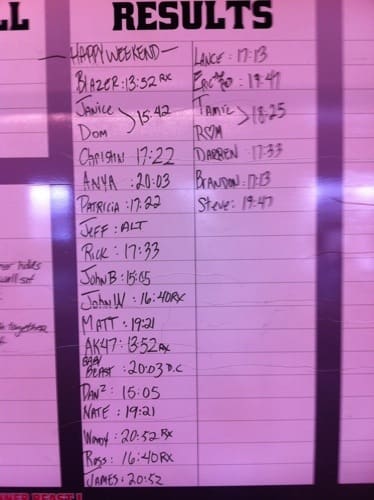 LL
RESULTS
— HAPPY WEEKEND —
BLAZER: 13:52 RX
JANICE
DOM
15:42
CHRISTIN 17:22
ANYA : 20:03
PATRICIA : 17:22
JEFF : ALT
RICK : 17:33
JOHN B : 15:05
JOHN W : 16:40 RX
MATT : 19:21
AK47 : 13:52 RX
BABY
BEAST : 20:03 D.C
DAN² : 15:05
NATE : 19:21
WOODY : 20:52 RX
ROSS : 16:40 RX
JAMES : 20:52
LANCE : 17:13
19:47
TAMIZ
R♡M
18:25
DARREN : 17:33
BRANDON : 17:13
STEVE : 19:47
to together